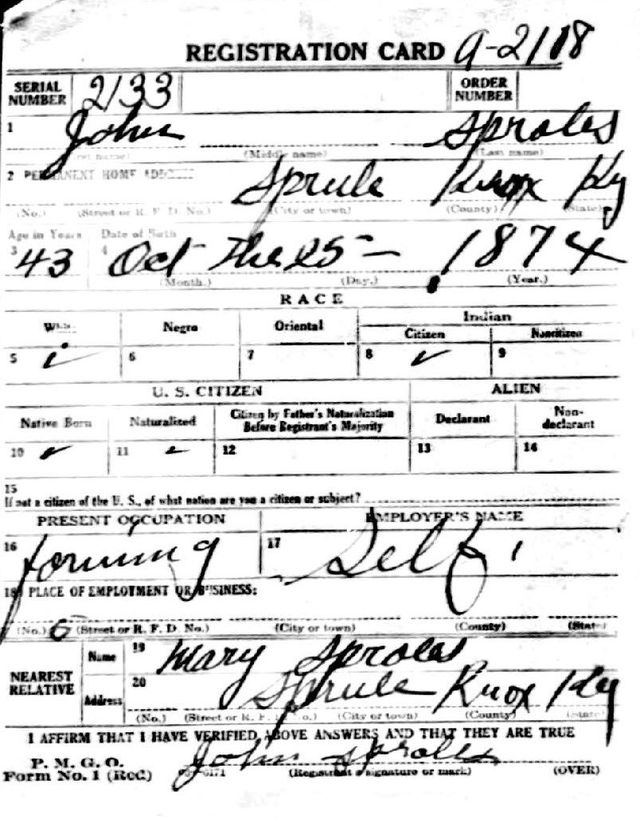 REGISTRATION CARD A-2108
SERIAL NUMBER 2133 ORDER NUMBER
1 John Sproles
(Middle name) (Last name)
2 PERMANENT HOME ADDRESS Sprule Knox Ky
(No.) (Street or R. F. D. No.) (City or town) (County) (State)
Age in Years Date of Birth
3 43 4 Oct the 25 - 1874
(Month.) (Day.) (Year.)
RACE
White Negro Oriental Indian
Citizen Noncitizen
5 6 7 8 ✓ 9
U. S. CITIZEN ALIEN
Native Born Naturalized Citizen by Father's Naturalization Before Registrant's Majority Declarant Non-declarant
10 ✓ 11 ✓ 12 13 14
15
If not a citizen of the U. S., of what nation are you a citizen or subject?
PRESENT OCCUPATION EMPLOYER'S NAME
16 forming 17 Self
18 PLACE OF EMPLOYMENT OR BUSINESS:
(No.) (Street or R. F. D. No.) (City or town) (County) (State)
NEAREST RELATIVE Name 19 Mary Sproles
Address 20 Sprule Knox Ky
(No.) (Street or R. F. D. No.) (City or town) (County) (State)
I AFFIRM THAT I HAVE VERIFIED ABOVE ANSWERS AND THAT THEY ARE TRUE
P. M. G. O.
Form No. 1 (Red) John Sproles
(Registrant's signature or mark) (OVER)